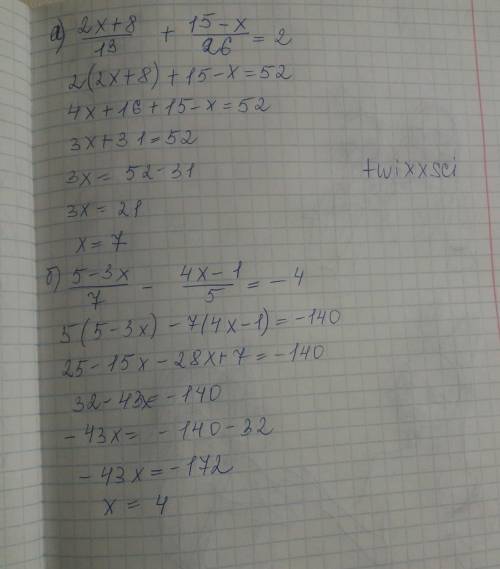 а) (2x+8)/13 + (15-x)/26 = 2
2(2x+8)+15-x=52
4x+16+15-x=52
3x+31=52
3x= 52-31
twixxsci
3x= 21
x=7
б) (5-3x)/7 - (4x-1)/5 = -4
5(5-3x)-7(4x-1)=-140
25-15x-28x+7=-140
32-43x=-140
-43x= -140-32
-43x=-172
x= 4